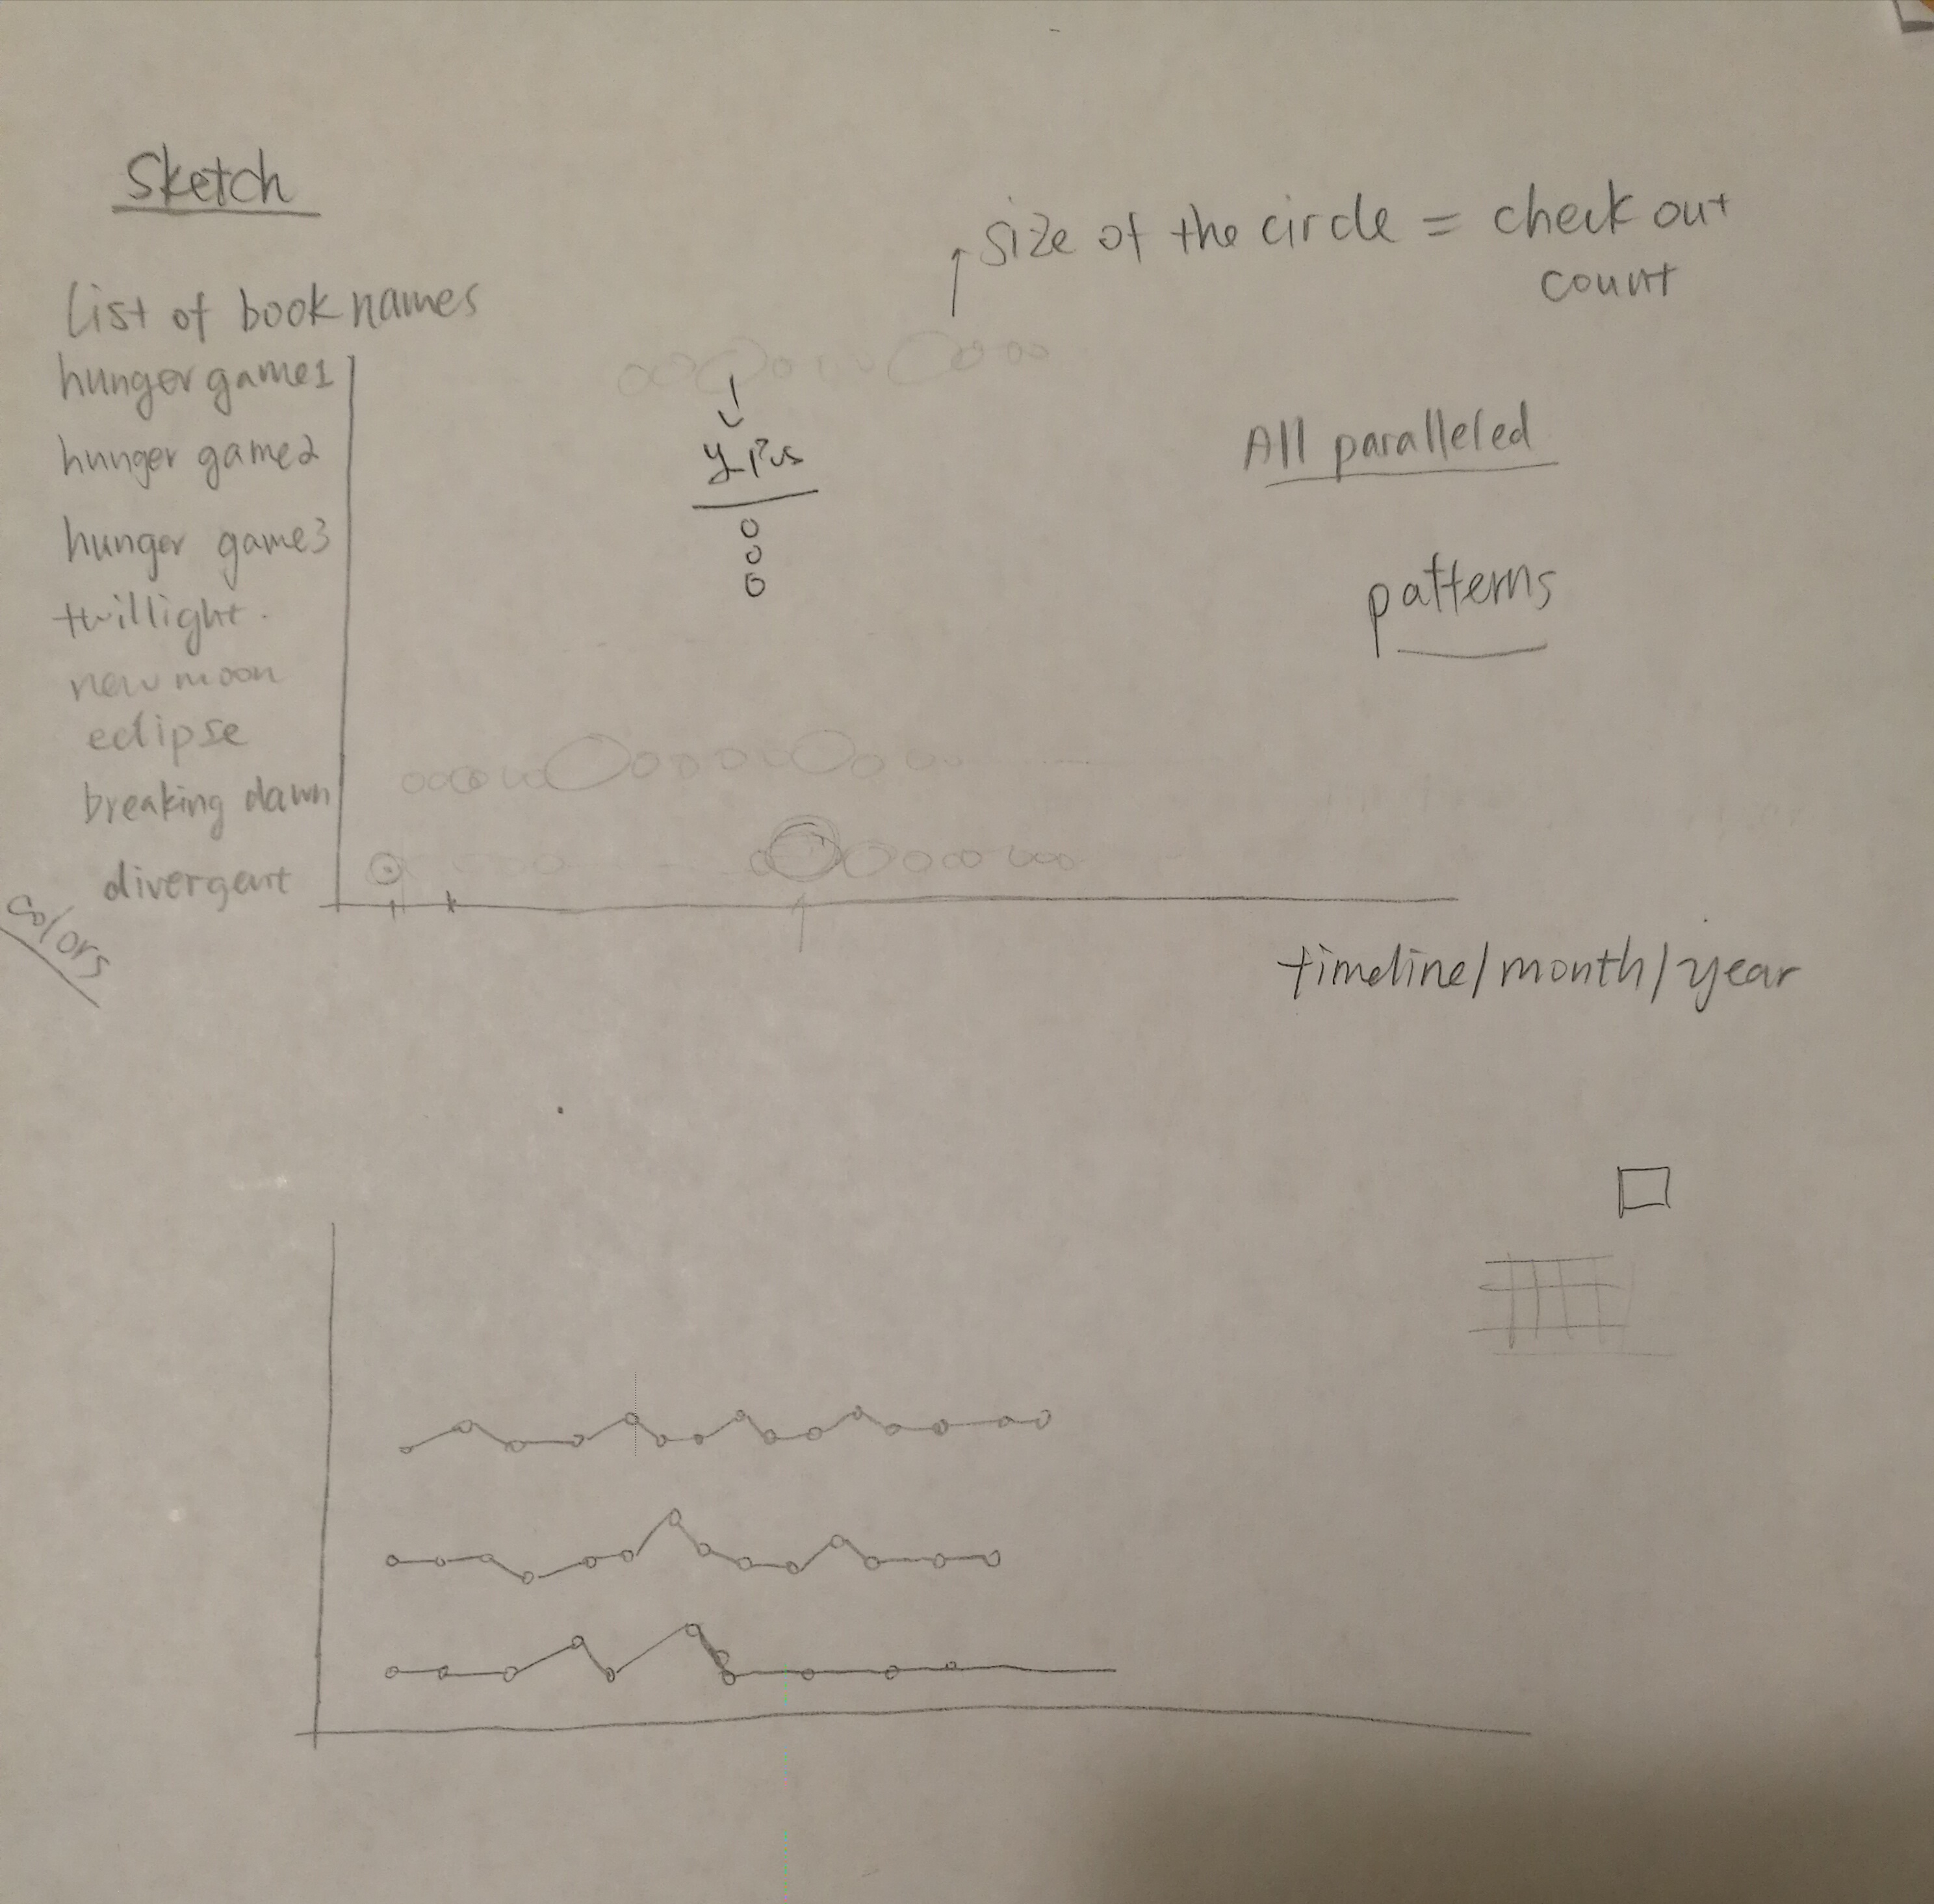 Sketch
size of the circle = check out
count
list of book names
hunger game1
hunger game2
hunger game3
twillight.
new moon
eclipse
breaking dawn
divergent
colors
All paralleled
patterns
timeline/month/year